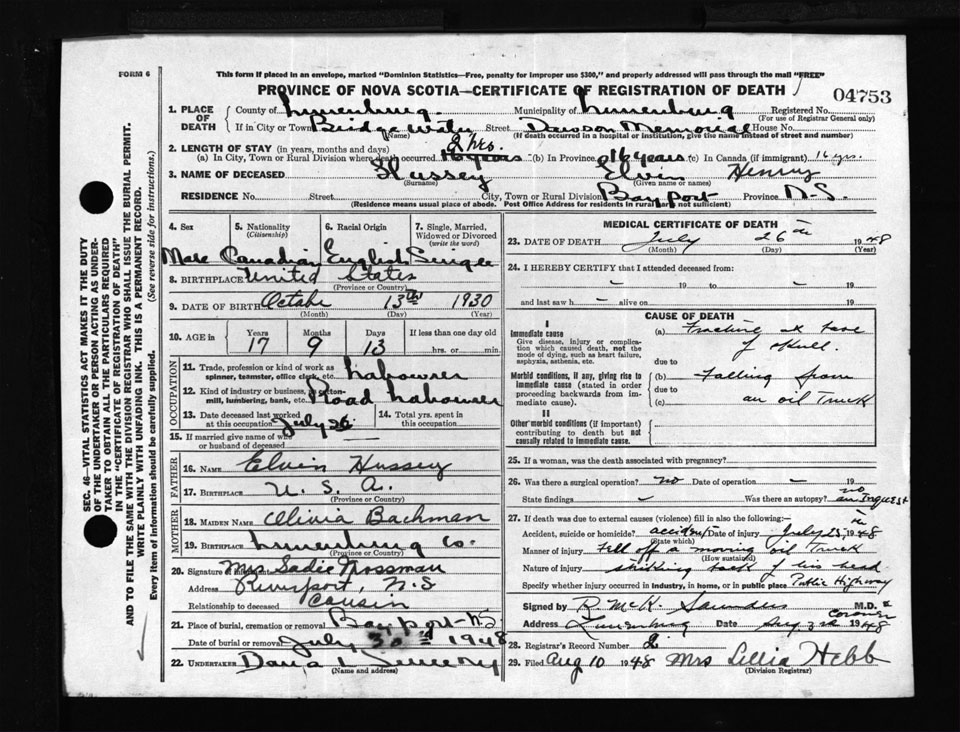 FORM 6
This form if placed in an envelope, marked "Dominion Statistics—Free, penalty for improper use $300," and properly addressed will pass through the mail "FREE"
PROVINCE OF NOVA SCOTIA—CERTIFICATE OF REGISTRATION OF DEATH
04753
1. PLACE OF DEATH County of Lunenburg Municipality of Lunenburg Registered No.
(For use of Registrar General only)
If in City or Town Bridgewater Street Dawson Memorial House No.
(Name) (If death occurred in a hospital or institution, give the name instead of street and number)
2. LENGTH OF STAY (in years, months and days) 2 hrs.
(a) In City, Town or Rural Division where death occurred 16 years (b) In Province 16 years (c) In Canada (if immigrant) 16 yrs.
3. NAME OF DECEASED Hussey Elvin Henry
(Surname) (Given name or names)
RESIDENCE No. Street City, Town or Rural Division Bayport Province N.S.
(Residence means usual place of abode. Post Office Address for residents in rural parts not sufficient)
4. Sex 5. Nationality (Citizenship) 6. Racial Origin 7. Single, Married, Widowed or Divorced (write the word)
Male Canadian English Single
8. BIRTHPLACE United States
(Province or Country)
9. DATE OF BIRTH October 13th 1930
(Month) (Day) (Year)
10. AGE in Years Months Days If less than one day old
17 9 13 hrs. or min.
OCCUPATION
11. Trade, profession or kind of work as spinner, teamster, office clerk, etc. Labourer
12. Kind of industry or business, as cotton-mill, lumbering, bank, etc. Road Labourer
13. Date deceased last worked at this occupation July 26 14. Total yrs. spent in this occupation
15. If married give name of wife or husband of deceased
FATHER
16. NAME Elvin Hussey
17. BIRTHPLACE U. S. A.
(Province or Country)
MOTHER
18. MAIDEN NAME Olivia Bachman
19. BIRTHPLACE Lunenburg Co.
(Province or Country)
20. Signature of informant Mrs Sadie Mossman
Address Riverport, N.S
Relationship to deceased Cousin
21. Place of burial, cremation or removal Bayport N.S
Date of burial or removal July 30 1948
22. UNDERTAKER
(Name and address)
MEDICAL CERTIFICATE OF DEATH
23. DATE OF DEATH July 26th 1948
(Month) (Day) (Year)
24. I HEREBY CERTIFY that I attended deceased from:
- 19 to - 19
and last saw h - alive on 19
CAUSE OF DEATH
I
Immediate cause (a) Fracture at base of skull.
Give disease, injury or complication which caused death, not the mode of dying, such as heart failure, asphyxia, asthenia, etc.
due to
Morbid conditions, if any, giving rise to immediate cause (stated in order proceeding backwards from immediate cause).
(b) Falling from
due to
(c) an oil Truck
II
Other morbid conditions (if important) contributing to death but not causally related to immediate cause.
25. If a woman, was the death associated with pregnancy?
26. Was there a surgical operation? no Date of operation - 19
State findings - Was there an autopsy? no an Inquest
27. If death was due to external causes (violence) fill in also the following:—
Accident, suicide or homicide? accident Date of injury July 25th 1948
(State which)
Manner of injury Fell off a moving oil Truck
(How sustained)
Nature of injury striking back of his head
Specify whether injury occurred in industry, in home, or in public place Public Highway
Signed by R. McK. Saunders M.D. & Coroner
Address Lunenburg Date Aug 3rd 1948
28. Registrar's Record Number
29. Filed Aug 10 1948 Mrs Lillia Hebb
(Division Registrar)
SEC. 46—VITAL STATISTICS ACT MAKES IT THE DUTY
OF THE UNDERTAKER OR PERSON ACTING AS UNDER-
TAKER TO OBTAIN ALL THE PARTICULARS REQUIRED
IN THE "CERTIFICATE OF REGISTRATION OF DEATH"
AND TO FILE THE SAME WITH THE DIVISION REGISTRAR WHO SHALL ISSUE THE BURIAL PERMIT.
WRITE PLAINLY WITH UNFADING INK. THIS IS A PERMANENT RECORD.
Every item of information should be carefully supplied. (See reverse side for instructions.)